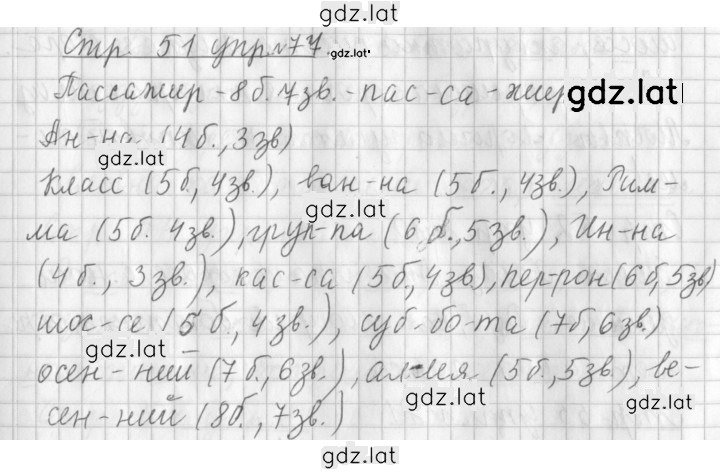 gdz.lat
Стр. 51 упр. №77 gdz.lat
Пассажир - 8б. 7зв. - пас-са-жир gdz.lat
Ан-на (4б., 3зв)
gdz.lat
Класс (5б, 4зв.), ван-на (5б., 4зв.), Рим-
gdz.lat
ма (5б. 4зв.), груп-па (6б., 5зв.), Ин-на
(4б., 3зв.), кас-са (5б, 4зв), пер-рон (6б, 5зв)
шос-се (5б, 4зв.), суб-бо-та (7б, 6зв.)
gdz.lat
осен-ний (7б, 6зв.), ал-лея (5б, 5зв.), ве-
gdz.lat gdz.lat
сен-ний (8б., 7зв.)
gdz.lat